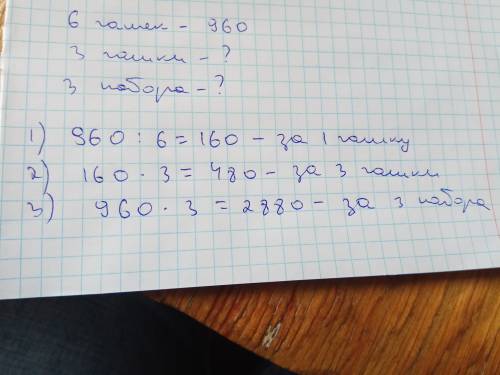 6 чашек - 960
3 чашки - ?
3 набора - ?
1) 960 : 6 = 160 - за 1 чашку
2) 160 · 3 = 480 - за 3 чашки
3) 960 · 3 = 2880 - за 3 набора